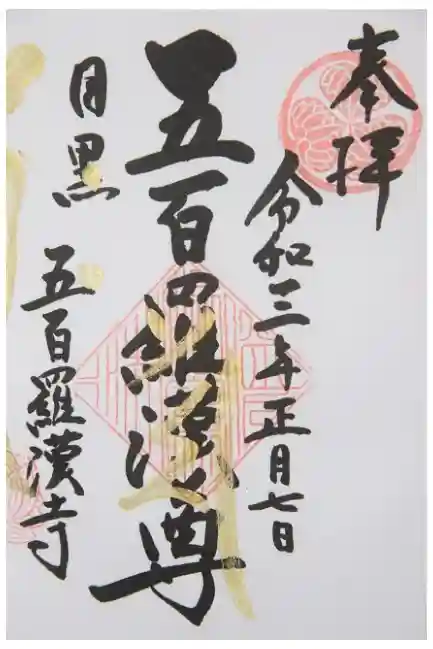 奉拝
令和三年正月七日
五百羅漢尊
目黒
五百羅漢寺